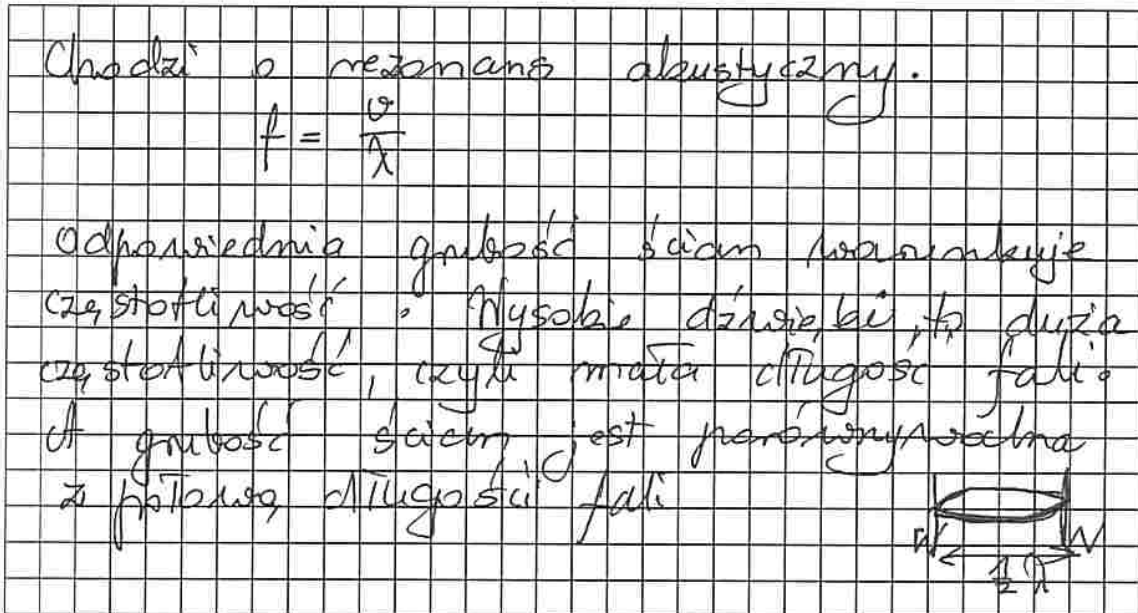 Chodzi o rezonans akustyczny.
f = v/λ
Odpowiednia grubość ścian warunkuje
częstotliwość. Wysokie dźwięki, to duża
częstotliwość, czyli mała długość fali.
A grubość ścian jest porównywalna
z połową długości fali
W W
½ λ